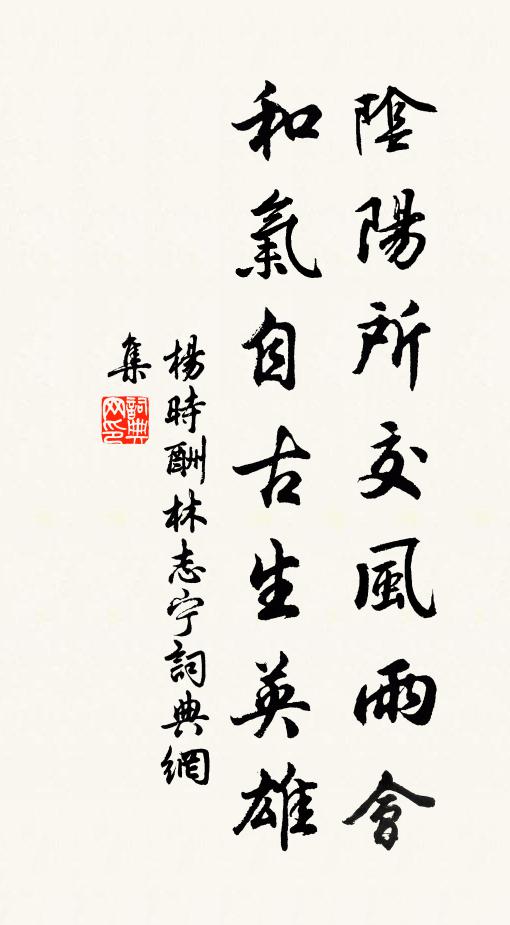 陰陽所交風雨會
和氣自古生英雄
楊時酬林志宁詞典網
集
詞典
网印